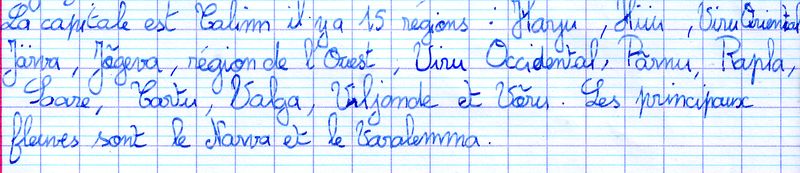 La capitale est Talinn il y a 15 régions : Harju, Hiiu, Viru Oriental
Järva, Jõgeva, région de l'Ouest, Viru Occidental, Pärnu, Rapla,
Saare, Tartu, Valga, Viljande et Võru. Les principaux
fleuves sont le Narva et le Varalemma.